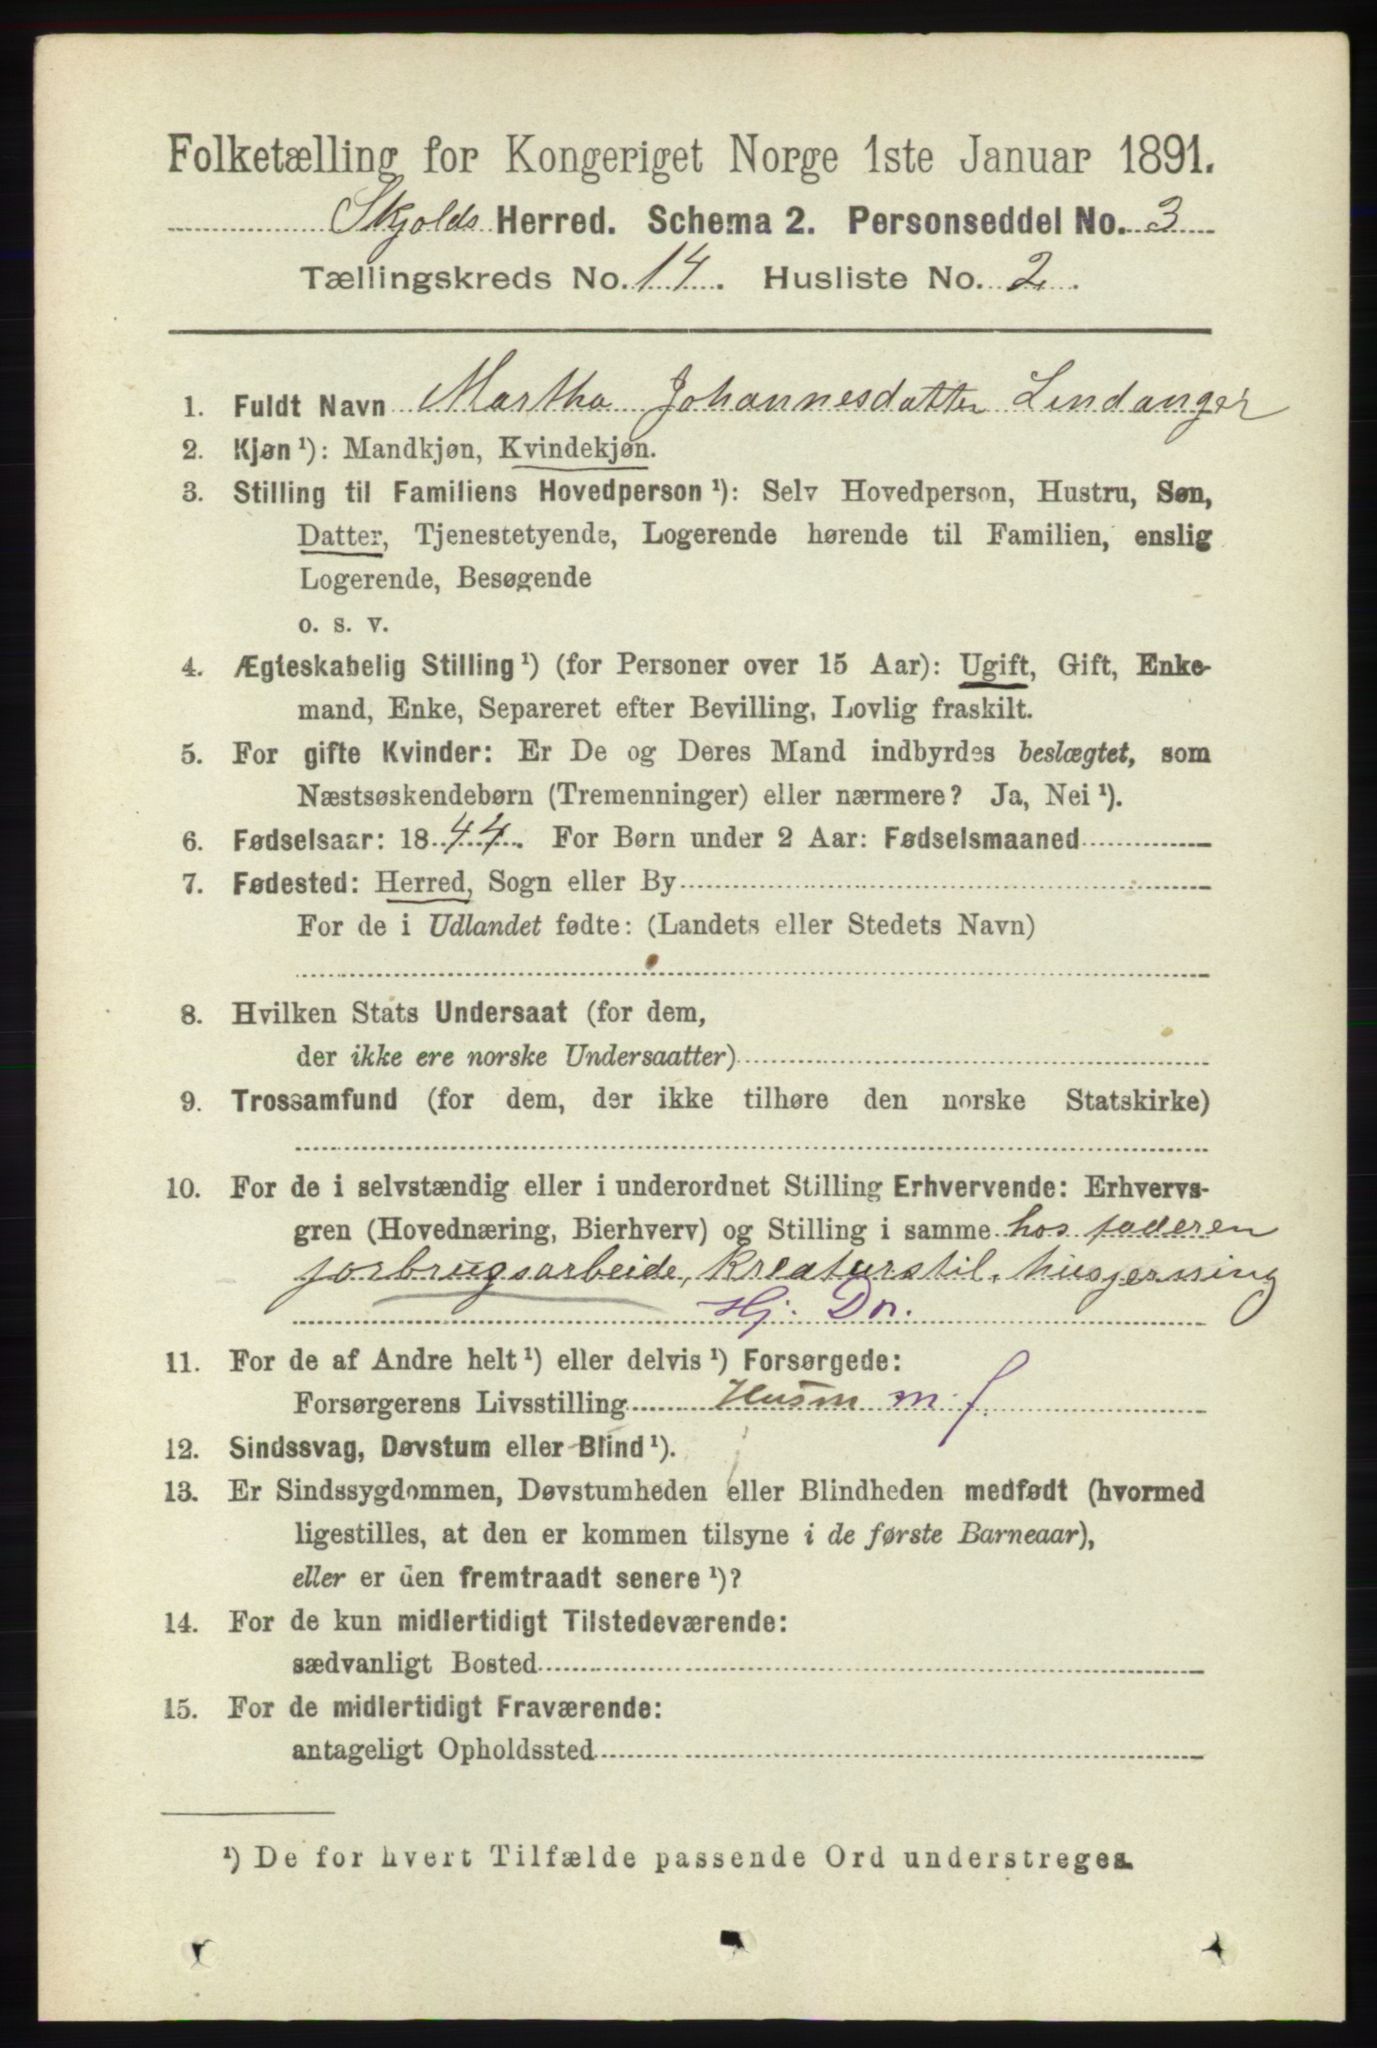 Folketælling for Kongeriget Norge 1ste Januar 1891.
Skjolds Herred. Schema 2. Personseddel No. 3
Tællingskreds No. 14. Husliste No. 2.
1. Fuldt Navn Martha Johannesdatter Lindanger
2. Kjøn¹): Mandkjøn, Kvindekjøn.
3. Stilling til Familiens Hovedperson¹): Selv Hovedperson, Hustru, Søn,
Datter, Tjenestetyende, Logerende hørende til Familien, enslig
Logerende, Besøgende
o. s. v.
4. Ægteskabelig Stilling¹) (for Personer over 15 Aar): Ugift, Gift, Enke-
mand, Enke, Separeret efter Bevilling, Lovlig fraskilt.
5. For gifte Kvinder: Er De og Deres Mand indbyrdes beslægtet, som
Næstsøskendebørn (Tremenninger) eller nærmere? Ja, Nei¹).
6. Fødselsaar: 1844. For Børn under 2 Aar: Fødselsmaaned
7. Fødested: Herred, Sogn eller By
For de i Udlandet fødte: (Landets eller Stedets Navn)
8. Hvilken Stats Undersaat (for dem,
der ikke ere norske Undersaatter)
9. Trossamfund (for dem, der ikke tilhøre den norske Statskirke)
10. For de i selvstændig eller i underordnet Stilling Erhvervende: Erhvervs-
gren (Hovednæring, Bierhverv) og Stilling i samme hos faderen
jorbrugsarbeide, kreaturstil. husjerning
Hj. Dn.
11. For de af Andre helt¹) eller delvis¹) Forsørgede:
Forsørgerens Livsstilling Husm m. f.
12. Sindssvag, Døvstum eller Blind¹).
13. Er Sindssygdommen, Døvstumheden eller Blindheden medfødt (hvormed
ligestilles, at den er kommen tilsyne i de første Barneaar),
eller er den fremtraadt senere¹)?
14. For de kun midlertidigt Tilstedeværende:
sædvanligt Bosted
15. For de midlertidigt Fraværende:
antageligt Opholdssted
¹) De for hvert Tilfælde passende Ord understreges.